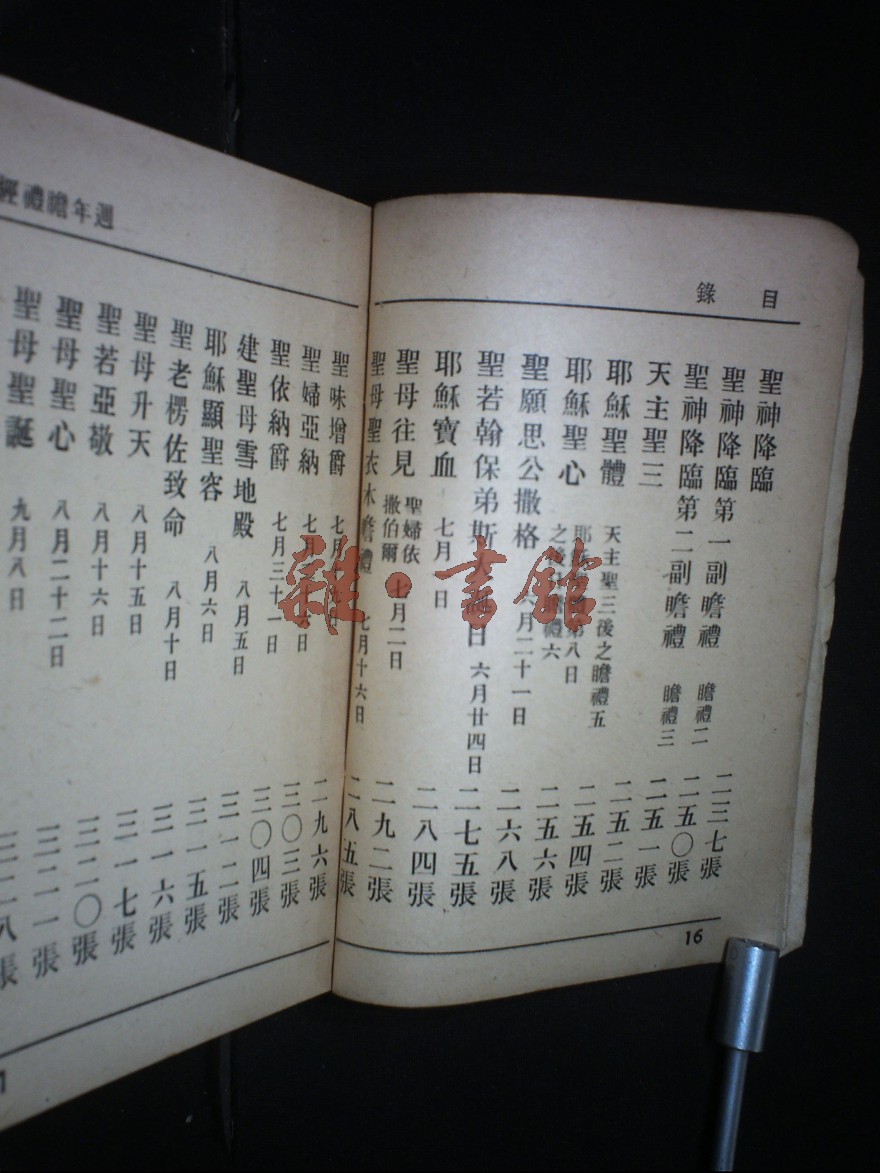 目錄
聖神降臨 二三七張
聖神降臨第一副瞻禮 瞻禮二 二五〇張
聖神降臨第二副瞻禮 瞻禮三 二五一張
天主聖三 二五二張
耶穌聖體 天主聖三後之瞻禮五 二五四張
耶穌聖心 第八日 之後 瞻禮六 二五六張
聖願思公撒格 六月二十一日 二六八張
聖若翰保弟斯大 日 六月廿四日 二七五張
耶穌寶血 七月 日 二八四張
聖母往見 聖婦依撒伯爾 七月二日 二九二張
聖母聖衣 瞻禮 七月十六日 二八五張
16
週年瞻禮經
聖味增爵 七月 日 二九六張
聖婦亞納 七月 六日 三〇三張
聖依納爵 七月三十一日 三〇四張
建聖母雪地殿 八月五日 三一二張
耶穌顯聖容 八月六日 三一五張
聖老楞佐致命 八月十日 三一六張
聖母升天 八月十五日 三一七張
聖若亞敬 八月十六日 三二〇張
聖母聖心 八月二十二日 三二一張
聖母聖誕 九月八日 三二八張
雜·書館